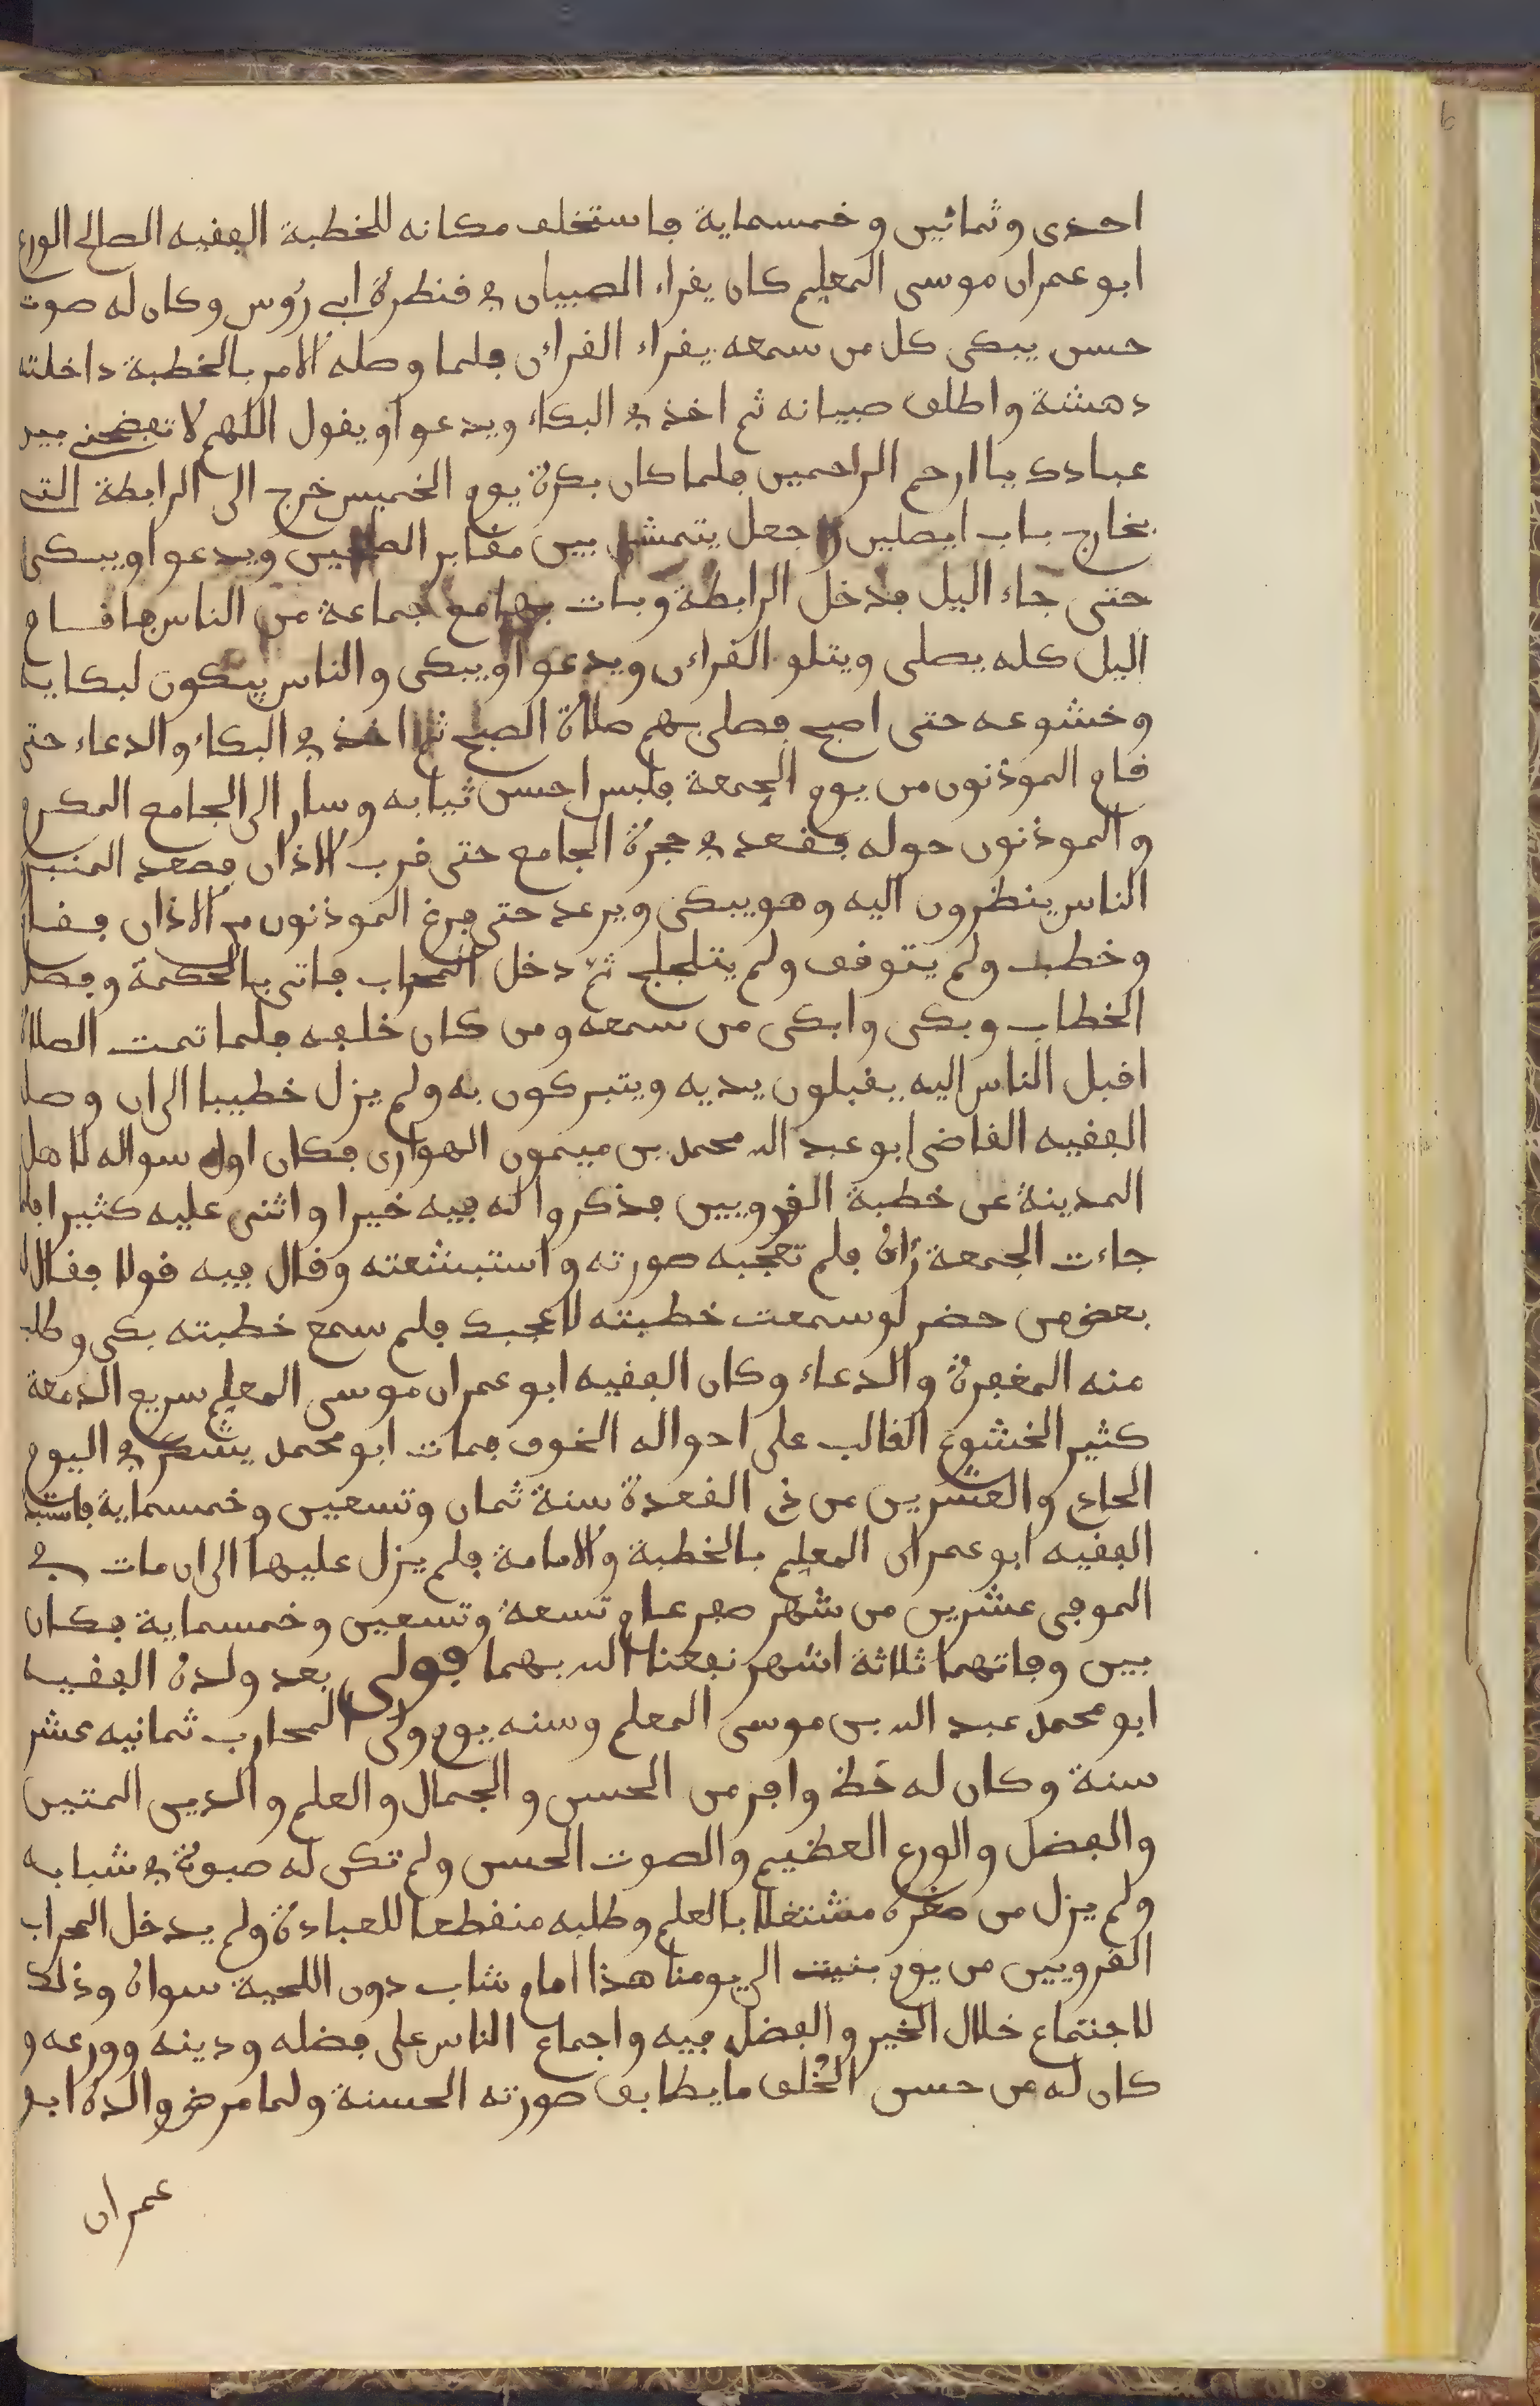 احدى وثمانين وخمسماية فاستخلف مكانه للخطبة الفقيه الصالح الورع
ابو عمران موسى المعلم كان يقراء الصبيان في قنطرة ابي رؤس وكان له صوت
حسن يبكى كل من سمعه يقراء القرءان فلما وصله الامر بالخطبة داخلته
دهشة واطلق صبيانه ثم اخذ في البكاء ويدعوا ويقول اللهم لا تفضحني بين
عبادك يا ارحم الراحمين فلما كان بكرة يوم الخميس خرج الى الرابطة التي
بخارج باب ايصليتن وجعل يتمشى بين مقابر الصالحين ويدعوا ويبكى
حتى جاء اليل فدخل الرابطة وبات بها مع جماعة من الناس فاقام
اليل كله يصلى ويتلو القرءان ويدعوا ويبكى والناس يبكون لبكايه
وخشوعه حتى اصبح فصلى بهم صلاة الصبح ثم اخذ في البكاء والدعاء حتى
قام الموذنون من يوم الجمعة فلبس احسن ثيابه وسار الى الجامع المكرم
والموذنون حوله فقعد في حجرة الجامع حتى قرب الاذان فصعد المنبر
الناس ينظرون اليه وهو يبكى ويرعد حتى فرغ الموذنون من الاذان فقام
وخطب ولم يتوقف ولم يتلجلج ثم دخل المحراب فاتى بالحكمة وفصل
الخطاب وبكى وابكى من سمعه ومن كان خلفه فلما تمت الصلاة
اقبل الناس اليه يقبلون يديه ويتبركون به ولم يزل خطيبا الى ان وصل
الفقيه القاضى ابو عبد الله محمد بن ميمون الهوارى فكان اول سواله لاهل
المدينة عن خطبة القرويين فذكروا له فيه خيرا واثنى عليه كثيرا فلما
جاءت الجمعة رءاه فلم تعجبه صورته واستبشعته وقال فيه قولا فقال له
بعض من حضر لو سمعت خطبته لاعجبك فلم سمع خطبته بكى وطلب
منه المغفرة والدعاء وكان الفقيه ابو عمران موسى المعلم سريع الدمعة
كثير الخشوع الغالب على احواله الخوف فمات ابو محمد يشكر في اليوم
الحادي والعشرين من ذي القعدة سنة ثمان وتسعين وخمسماية فاستبد
الفقيه ابو عمران المعلم بالخطبة والامامة فلم يزل عليها الى ان مات في
الموفى عشرين من شهر صفر عام تسعة وتسعين وخمسماية فكان
بين وفاتهما ثلاثة اشهر نفعنا الله بهما فولى بعد ولده الفقيه
ابو محمد عبد الله بن موسى المعلم وسنه يوم ولى المحارب ثمانيه عشر
سنة وكان له حظ وافر من الحسن والجمال والعلم والدين المتين
والفضل والورع العظيم والصوت الحسن ولم تكن له صبوة في شبابه
ولم يزل من صغره مشتغلا بالعلم وطلبه منقطعا للعبادة ولم يدخل المحراب
القرويين من يوم بنيت الى يومنا هذا امام شاب دون اللحية سواه وذلك
لاجتماع خلال الخير والفضل فيه واجماع الناس على فضله ودينه وورعه و
كان له من حسن الخلق ما يطابق صورته الحسنة ولما مرض والده ابو
عمران